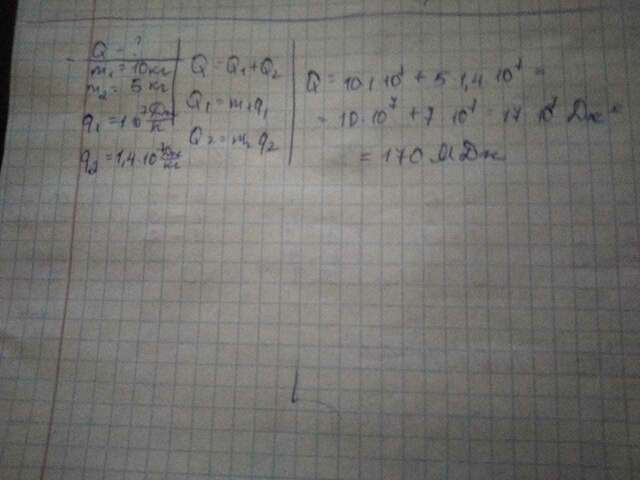 Q - ?
m₁ = 10 кг
m₂ = 5 кг
q₁ = 10⁷ Дж/кг
q₂ = 1,4·10⁷ Дж/кг
Q = Q₁ + Q₂
Q₁ = m₁q₁
Q₂ = m₂ q₂
Q = 10·10⁷ + 5·1,4·10⁷ =
= 10·10⁷ + 7·10⁷ = 17·10⁷ Дж =
= 170 МДж